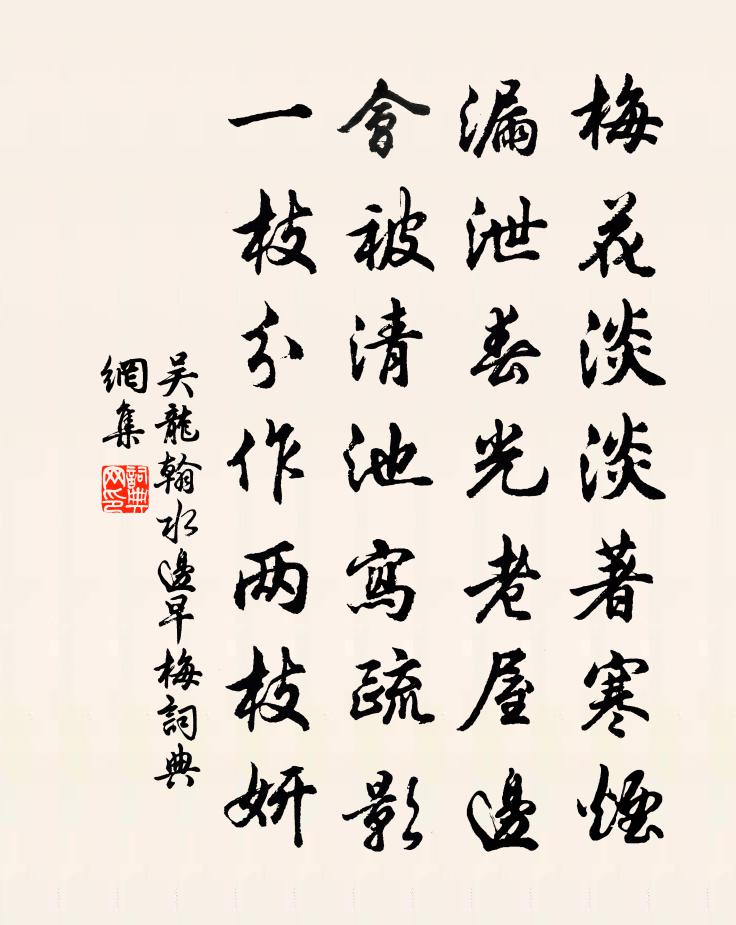 梅花淡淡著寒煙
漏泄春光老屋邊
會被清池寫疏影
一枝分作两枝妍
吴龍翰水邊早梅詞典
網集
詞典
网印